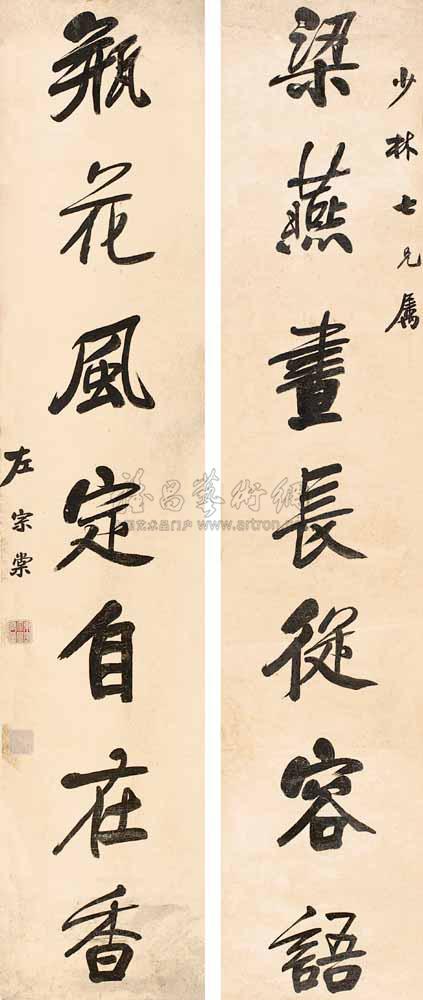 少林七兄屬
梁燕晝長從容語
瓶花風定自在香
左宗棠
雅昌藝術網
中国艺术品门户 www.artron.net